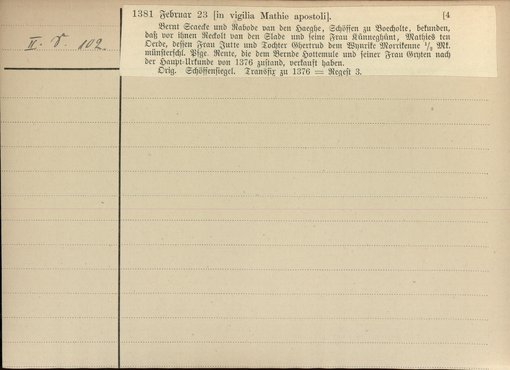 1381 Februar 23 [in vigilia Mathie apostoli]. [4
Bernt Scaecke und Rabode van den Haeghe, Schöffen zu Boecholte, bekunden,
daß vor ihnen Reckolt van den Slade und seine Frau Künneghünt, Mathies ten
Oerde, dessen Frau Jutte und Tochter Ghertrud dem Wynrike Morrikenne 1/2 Mk.
münsterschl. Pfge. Rente, die dem Bernde Hottemule und seiner Frau Greten nach
der Haupt-Urkunde von 1376 zustand, verkauft haben.
Orig. Schöffensiegel. Transfix zu 1376 = Regest 3.
II. 102.